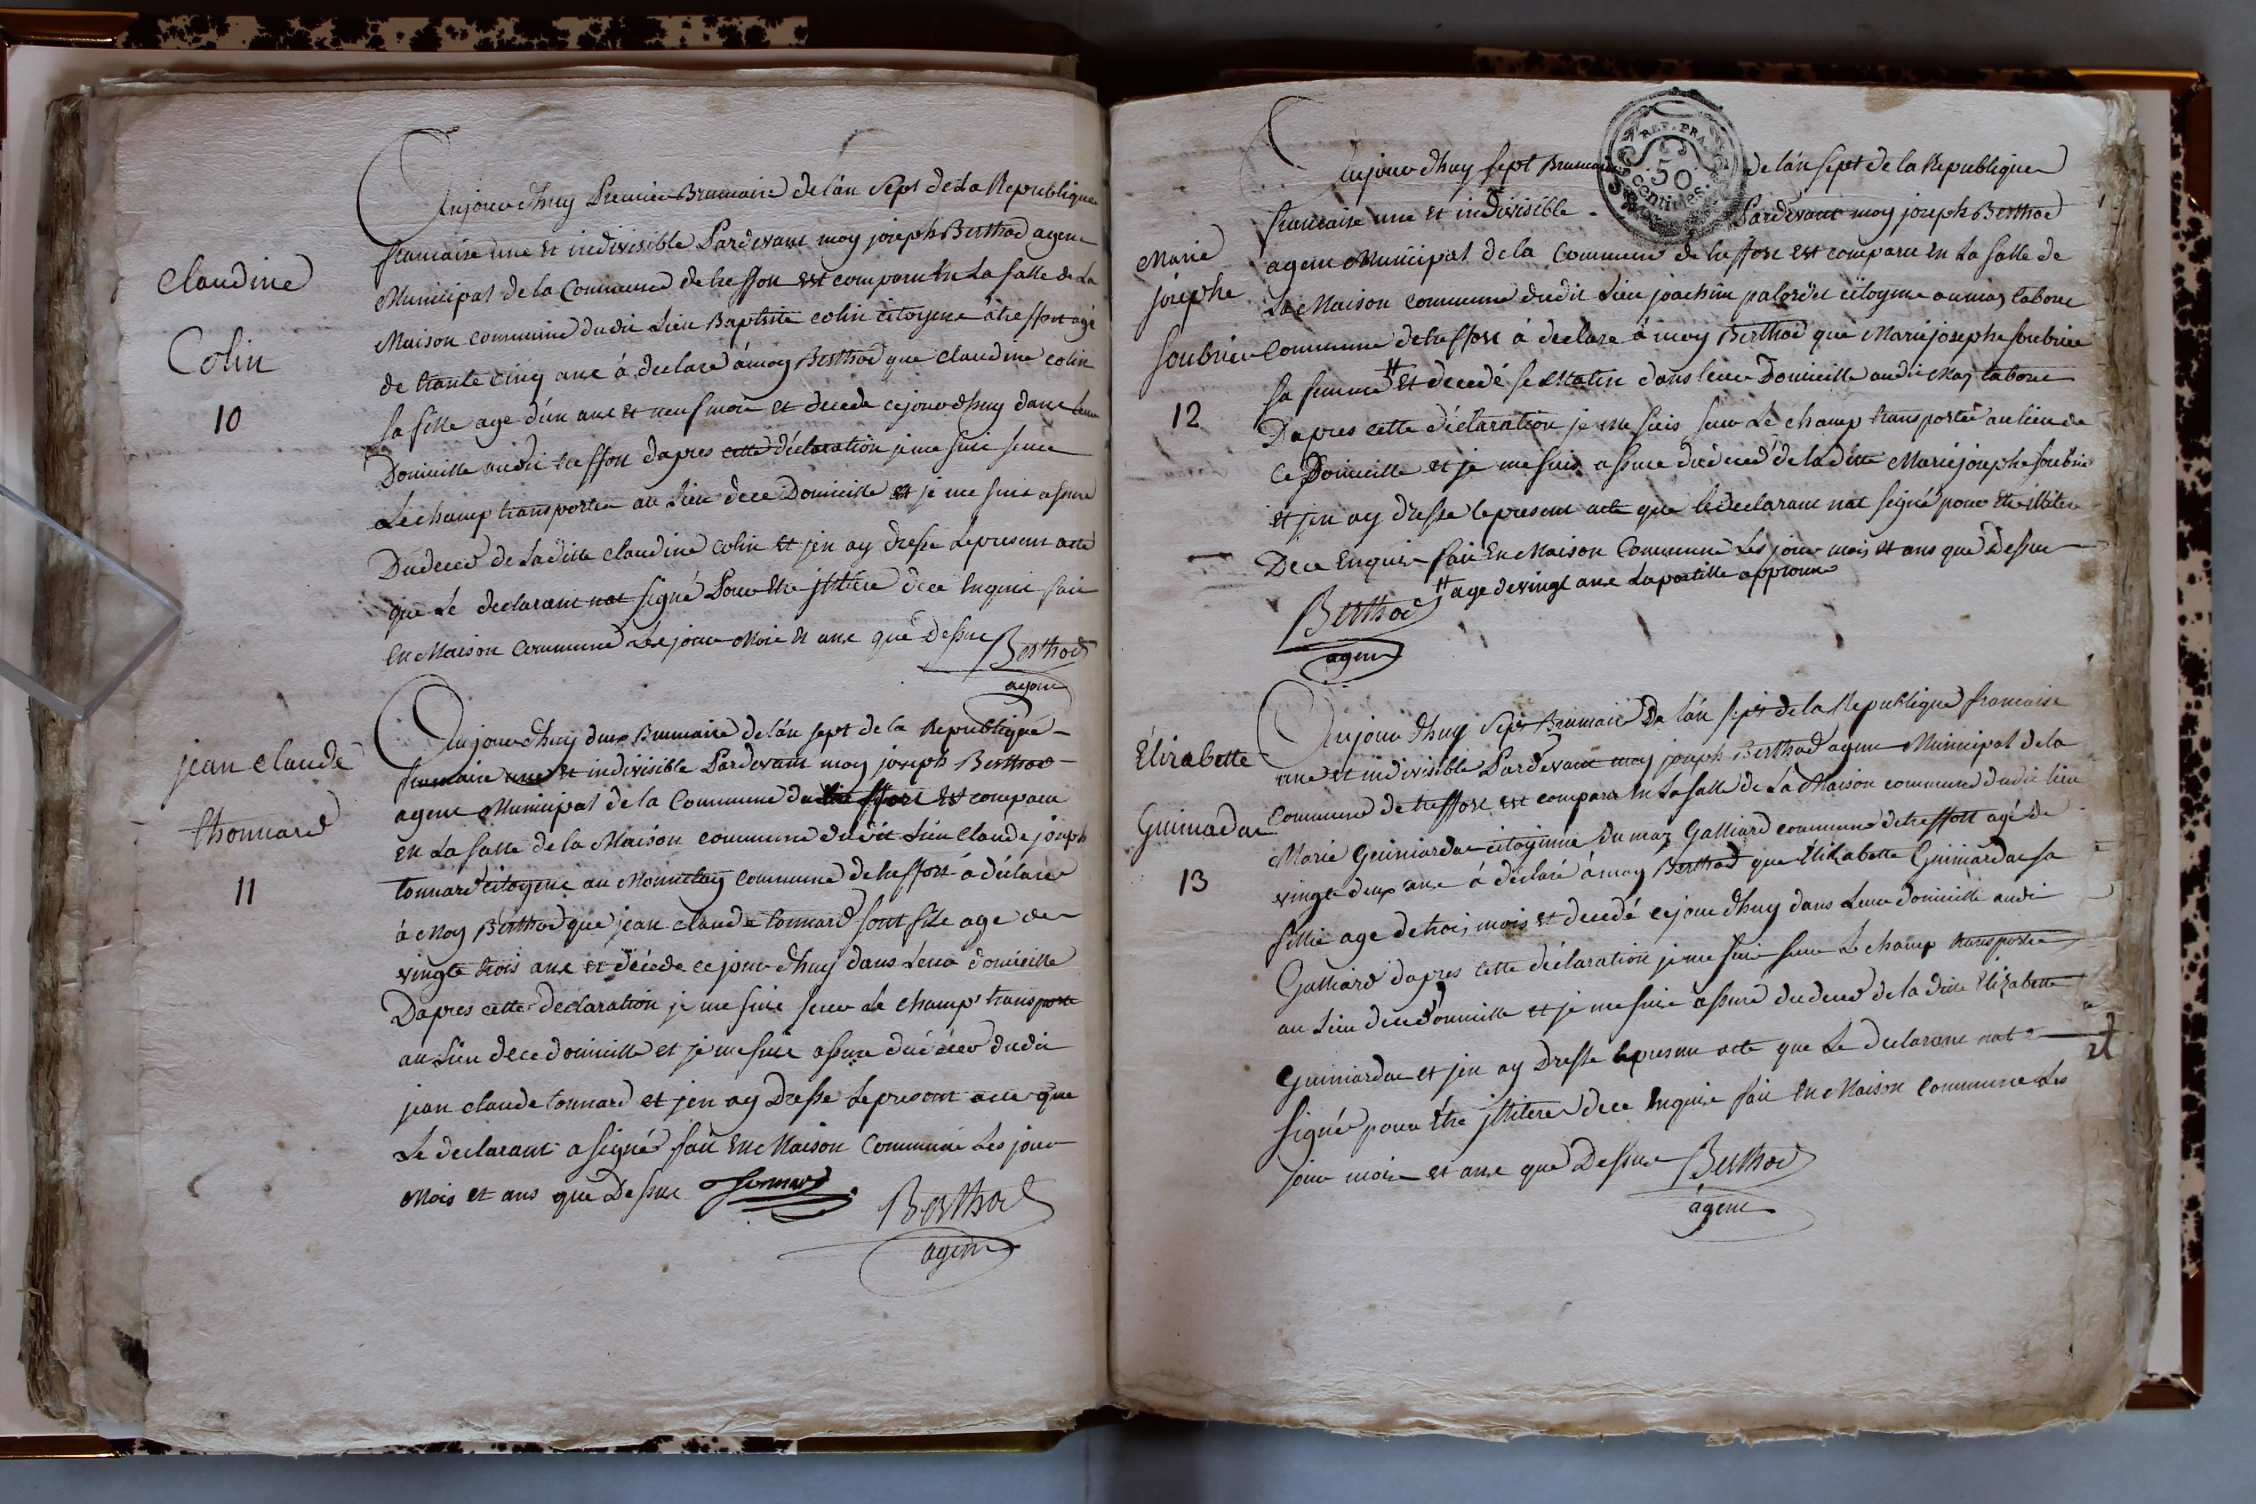 Claudine
Colin
10
Aujourdhuy Premier Brumaire de lán sept de La Republique
francaise une et indivisible Pardevant moy joseph Berthod agent
Municipal de la Commune de treffort est comparu En La salle de La
Maison commune dudit Lieu Baptiste colin citoyens á treffort agé
de trante cinq ans á declaré ámoy Berthod que claudine colin
sa fille age dún ans et neuf mois et decede cejourdhuy dans leur
Domicille audit treffort dapres cette déclaration je me suis seur
Le champ transporter au Lieu dece Domicille et je me suis assure
Dudeces de Laditte claudine colin et jen ay dresse Lepresent acte
que Le declarant nat signé Pour Etre jlitéré dece Enquis fait
En Maison Commune Les jour Mois et ans que Dessus Berthod
agent
jean claude
thonnard
11
Aujourdhuy deux Brumaire de lán sept de la Republique
francaise une et indivisible Pardevant moy joseph Berthod
agent Municipal de la Commune de treffort Est comparu
En La salle de la Maison commune dudit Lieu Claude joseph
tonnard citoyens au Monnetay commune de treffort á déclaré
á Moy Berthod que jean claude tonnard sont fils age de
vingts trois ans et décede ce jourdhuy dans Leur domicille
Dapres cette declaration je me suis seur Le champs transporte
au Lieu dece domicille et je me suis assure du déces dudit
jean claude tonnard et jen ay Dresse Lepresent acte que
Le declarant a signé fait En Maison Commune Les jour
Mois et ans que Dessus tonnard
Berthod
agent
Marie
josephe
soubrier
12
REP. FRA.
50
centimes
Aujourdhuy sept Brumaire de lán sept de la Republique
francaise une et indivisible Pardevant moy joseph Berthod
agent Municipal de la Commune de treffort est comparu En La salle de
La Maison commune dudit Lieu joachim palordet citoyens au maz labour
Commune de treffort á declare á moy Berthod que Marie josephe soubrier
sa femme # Et decedé se Matin dans leur Domicille audit Maz labour
Dapres cette déclaration je me suis seur Le champ transporter au lieu de
ce Domicille et je me suis assure du deced de la ditte Marie josephe soubrier
et jen ay dresse le present acte que le declarant nat signé pour Etre illitere
Dece Enquis fait En Maison Commune Les jour mois et ans que Dessus
# age de vingt ans La postille approuve
Berthod
agent
Élizabette
Guimardac
13
Aujourdhuy sept Brumaire De lán sept de la Republique francaise
une et indivisible Pardevant moy joseph Berthod agent Municipal de la
Commune de treffort est comparu En La salle de La Maison commune dudit lieu
Marie Guimardac citoyenne Du maz Galliard commune de treffort agé de
vingts deux ans á declaré á moy Berthod que Elizabette Guimardac sa
fillie age de trois mois et decedé cejourdhuy dans Leur domicille audit
Galliard dapres cette déclaration je me suis seur Le champ transporter
au Lieu dece Domicille et je me suis assure du deces de la ditte Elizabette
Guimardac et jen ay Dresse lepresent acte que Le declarant nat
signé pour étre jllitere dece Enquis fait En Maison Commune Les
jour mois et ans que Dessus Berthod
agent